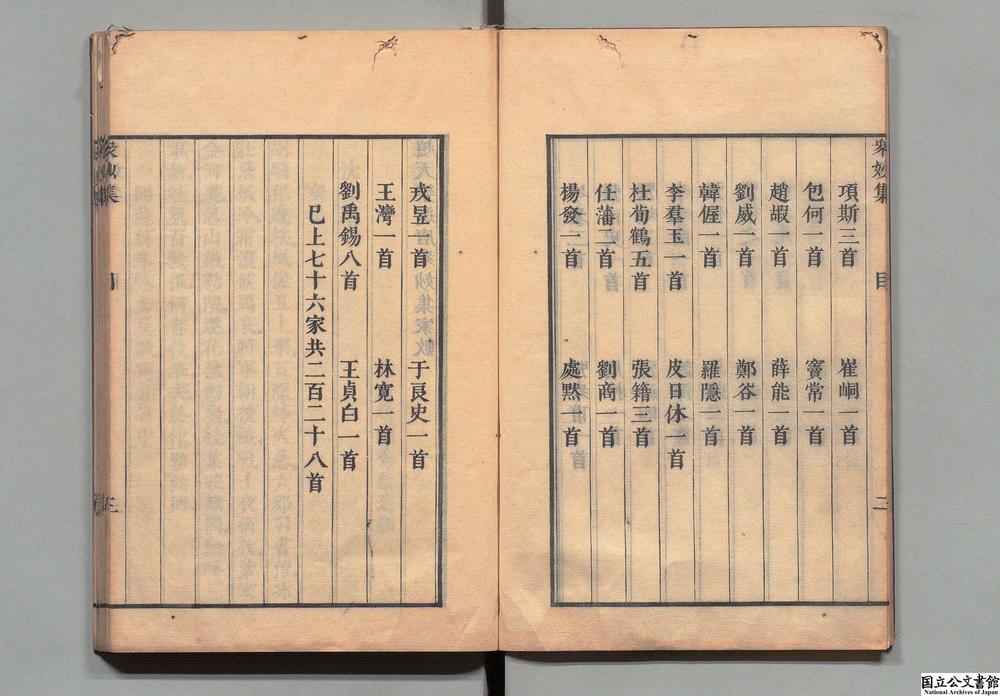 衆妙集 目 二
項斯三首 崔峒一首
包何一首 竇常一首
趙嘏一首 薛能一首
劉威一首 鄭谷一首
韓偓一首 羅隱一首
李羣玉一首 皮日休一首
杜荀鶴五首 張籍三首
任藩一首 劉商一首
楊發一首 處黙一首
戎昱一首 于良史一首
王灣一首 林寛一首
劉禹錫八首 王貞白一首
已上七十六家共二百二十八首
衆妙集 目 三
国立公文書館
National Archives of Japan